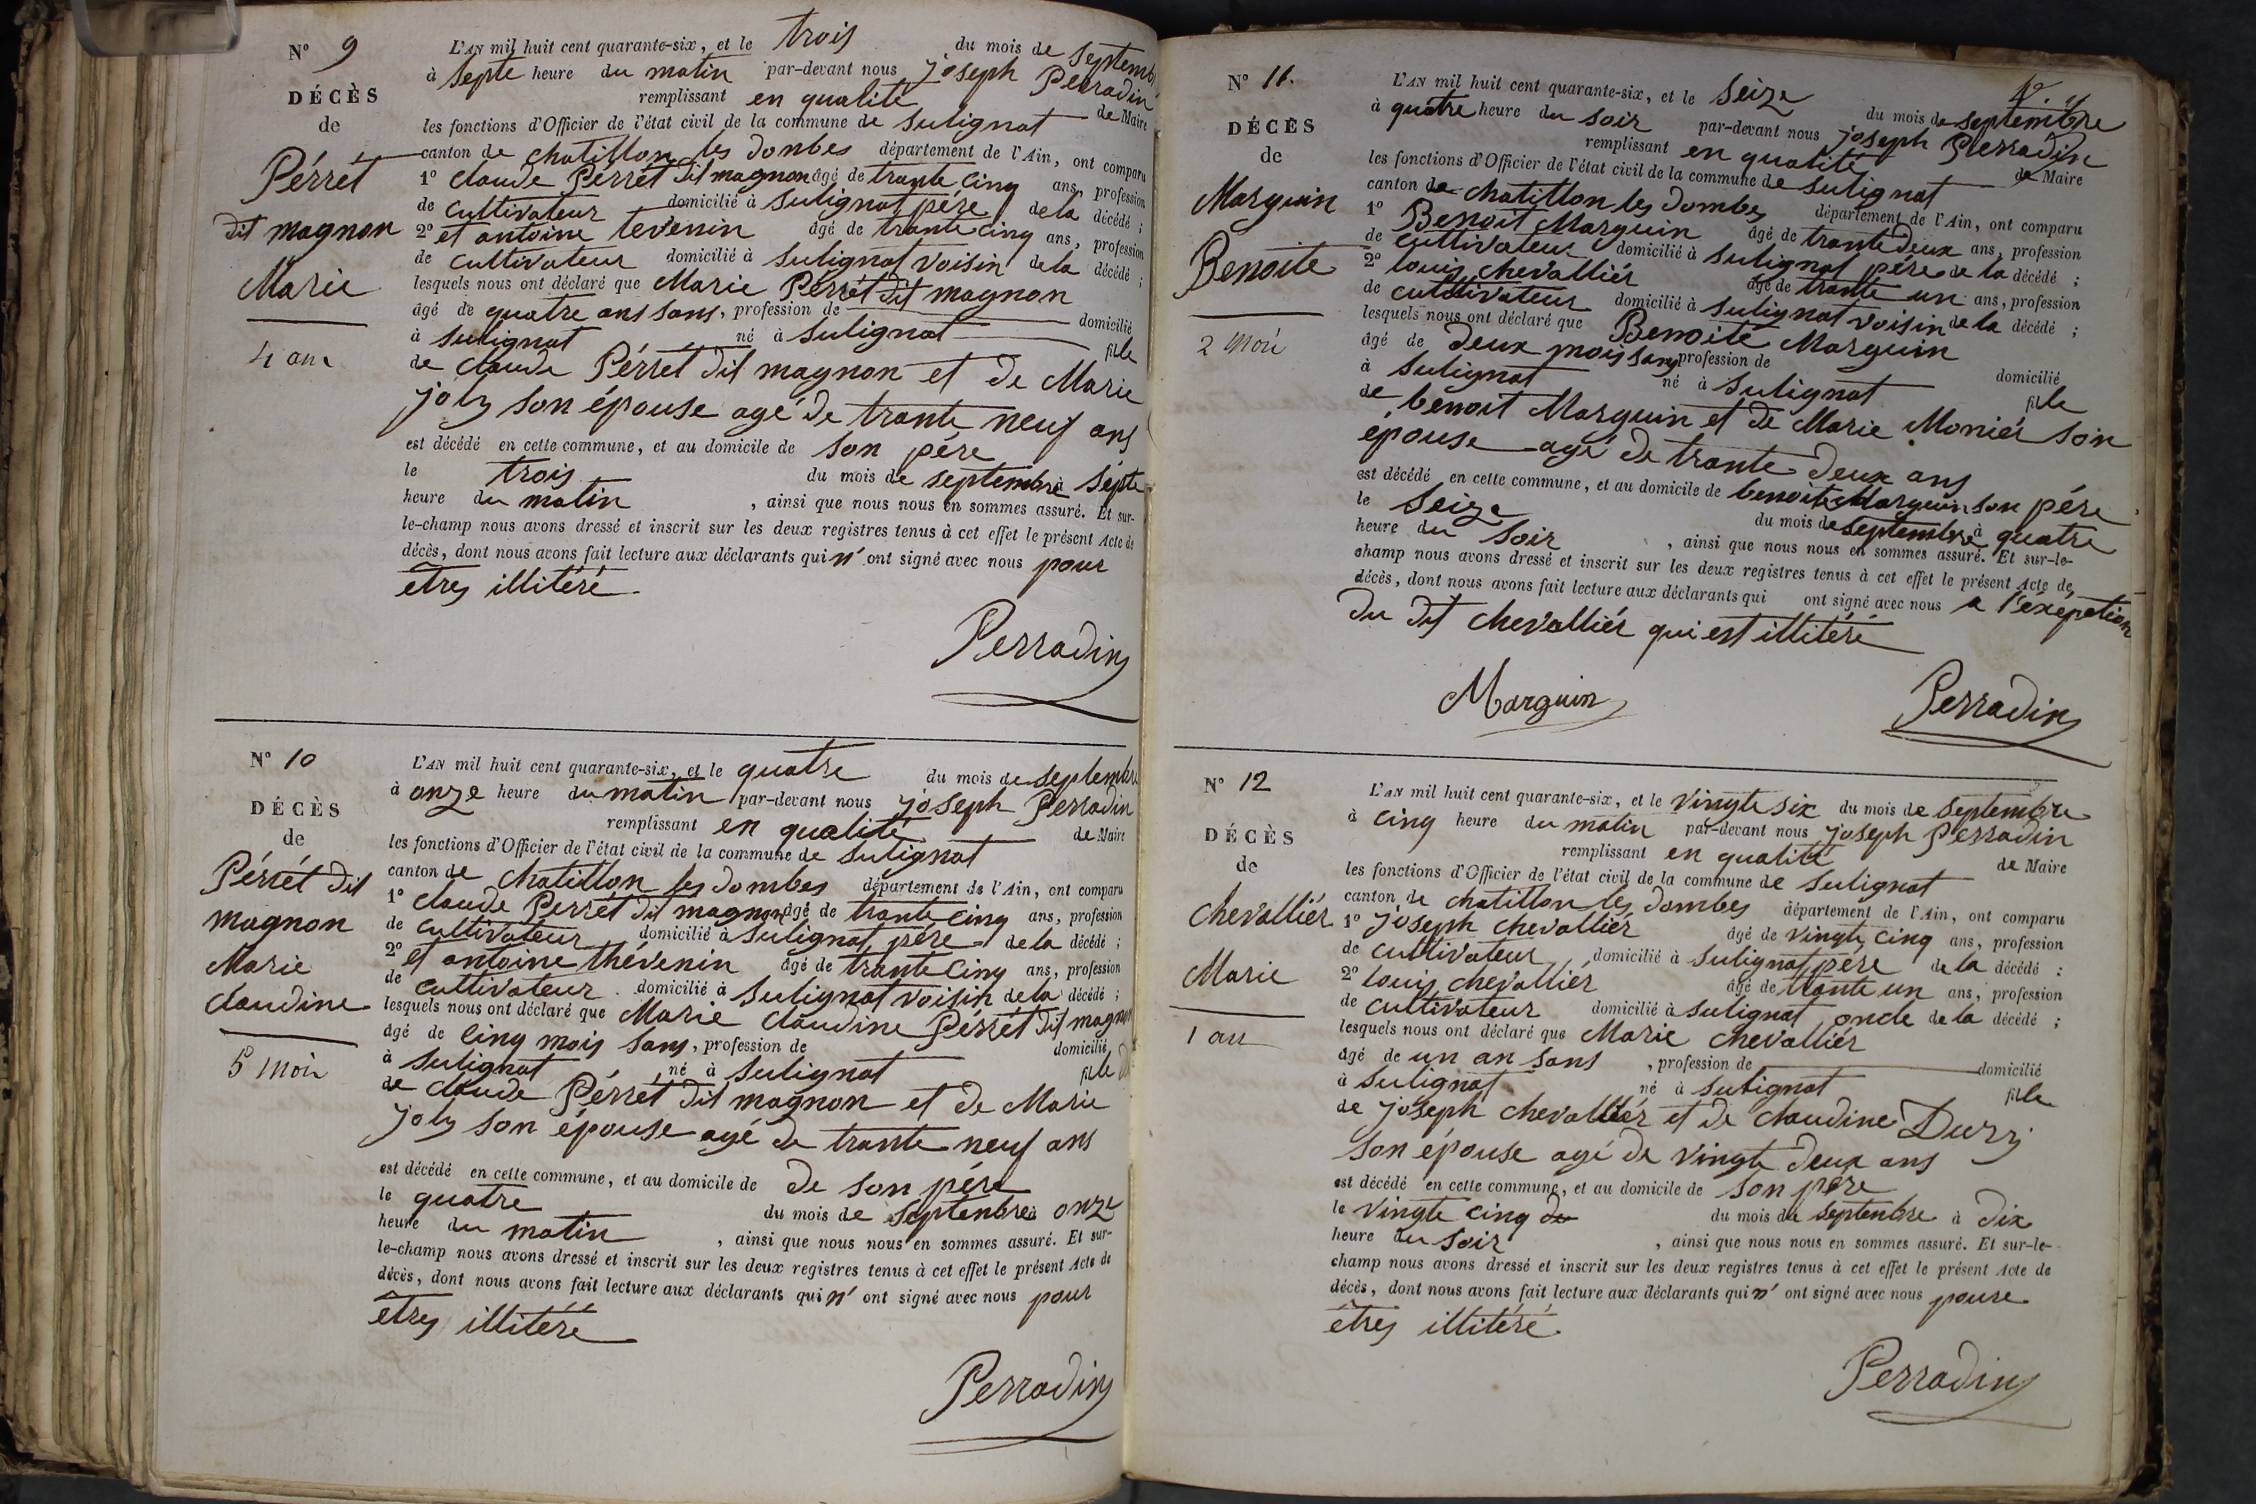 N° 9
DÉCÈS
de
Pérrét
dit magnon
Marie
4 ans
L'AN mil huit cent quarante-six, et le trois du mois de septembre
à septe heure du matin par-devant nous joseph Perradin
remplissant en qualité de Maire
les fonctions d'Officier de l'état civil de la commune de sulignat
canton de chatillon les dombes département de l'Ain, ont comparu
1° claude Pérrét dit magnon âgé de trante cinq ans, profession
de cultivateur domicilié à sulignat pére de la décédé ;
2° et antoine tevenin âgé de trante cinq ans, profession
de cultivateur domicilié à sulignat voisin de la décédé ;
lesquels nous ont déclaré que Marie Pérrét dit magnon
âgé de quatre ans sans, profession de domicilié
à sulignat né à sulignat fille
de claude Pérrét dit magnon et de Marie
joly son épouse agé de trante neuf ans
est décédé en cette commune, et au domicile de son pére
le trois du mois de septembre à sépte
heure du matin , ainsi que nous nous en sommes assuré. Et sur-
le-champ nous avons dressé et inscrit sur les deux registres tenus à cet effet le présent Acte de
décès, dont nous avons fait lecture aux déclarants qui n' ont signé avec nous pour
êtres illitéré
Perradin
N° 10
DÉCÈS
de
Pérrét dit
magnon
Marie
claudine
5 mois
L'AN mil huit cent quarante-six, et le quatre du mois de septembre
à onze heure du matin par-devant nous joseph Perradin
remplissant en qualité de Maire
les fonctions d'Officier de l'état civil de la commune de sulignat
canton de chatillon les dombes département de l'Ain, ont comparu
1° claude Perrét dit magnon âgé de trante cinq ans, profession
de cultivateur domicilié à sulignat pére de la décédé ;
2° et antoine thévenin âgé de trante cinq ans, profession
de cultivateur domicilié à sulignat voisin de la décédé ;
lesquels nous ont déclaré que Marie claudine Pérrét dit magnon
âgé de cinq mois sans, profession de domicilié
à sulignat né à sulignat fille
de claude Pérrét dit magnon et de Marie
joly son épouse agé de trante neuf ans
est décédé en cette commune, et au domicile de de son pére
le quatre du mois de septenbre à onze
heure du matin , ainsi que nous nous en sommes assuré. Et sur-
le-champ nous avons dressé et inscrit sur les deux registres tenus à cet effet le présent Acte de
décès, dont nous avons fait lecture aux déclarants qui n' ont signé avec nous pour
êtres illitéré
Perradin
N° 11.
DÉCÈS
de
Marguin
Benoite
2 mois
L'AN mil huit cent quarante-six, et le seize du mois de septembre
à quatre heure du soir par-devant nous joseph Perradin
remplissant en qualité de Maire
les fonctions d'Officier de l'état civil de la commune de sulignat
canton de chatillon les dombes département de l'Ain, ont comparu
1° Benoit Marguin âgé de trante deux ans, profession
de cultivateur domicilié à sulignat pére de la décédé ;
2° louis chevalliér âgé de trante un ans, profession
de cultivateur domicilié à sulignat voisin de la décédé ;
lesquels nous ont déclaré que Benoité Marguin
âgé de deux mois sans profession de domicilié
à sulignat né à sulignat fille
de bénoit Marguin et de Marie Moniér son
épouse agé de trante deux ans
est décédé en cette commune, et au domicile de benoite Marguin son pére
le seize du mois de septembre à quatre
heure du soir , ainsi que nous nous en sommes assuré. Et sur-le-
champ nous avons dressé et inscrit sur les deux registres tenus à cet effet le présent Acte de
décès, dont nous avons fait lecture aux déclarants qui ont signé avec nous a l'éxépetion
du dit chevalliér qui est illitéré
Marguin Perradin
N° 12
DÉCÈS
de
chevalliér
Marie
1 an
L'AN mil huit cent quarante-six, et le vingte six du mois de septembre
à cinq heure du matin par-devant nous joseph Perradin
remplissant en qualité de Maire
les fonctions d'Officier de l'état civil de la commune de sulignat
canton de chatillon les dombes département de l'Ain, ont comparu
1° joseph chevalliér âgé de vingte cinq ans, profession
de cultivateur domicilié à sulignat pére de la décédé ;
2° louis chevalliér âgé de trante un ans, profession
de cultivateur domicilié à sulignat oncle de la décédé ;
lesquels nous ont déclaré que Marie chevalliér
âgé de un an sans , profession de domicilié
à sulignat né à sulignat fille
de joseph chevalliér et de claudine Dury
son épouse agé de vingte deux ans
est décédé en cette commune, et au domicile de son pére
le vingte cinq de du mois de septenbre à dix
heure du soir , ainsi que nous nous en sommes assuré. Et sur-le-
champ nous avons dressé et inscrit sur les deux registres tenus à cet effet le présent Acte de
décès, dont nous avons fait lecture aux déclarants qui n' ont signé avec nous poure
êtres illitéré
Perradin